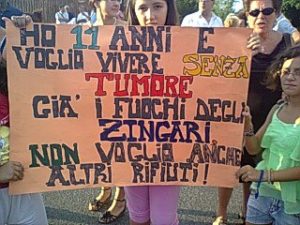 HO 11 ANNI E
VOGLIO VIVERE SENZA
TUMORE
GIA' I FUOCHI DEGLI
ZINGARI
NON VOGLIO ANCHE
ALTRI RIFIUTI!